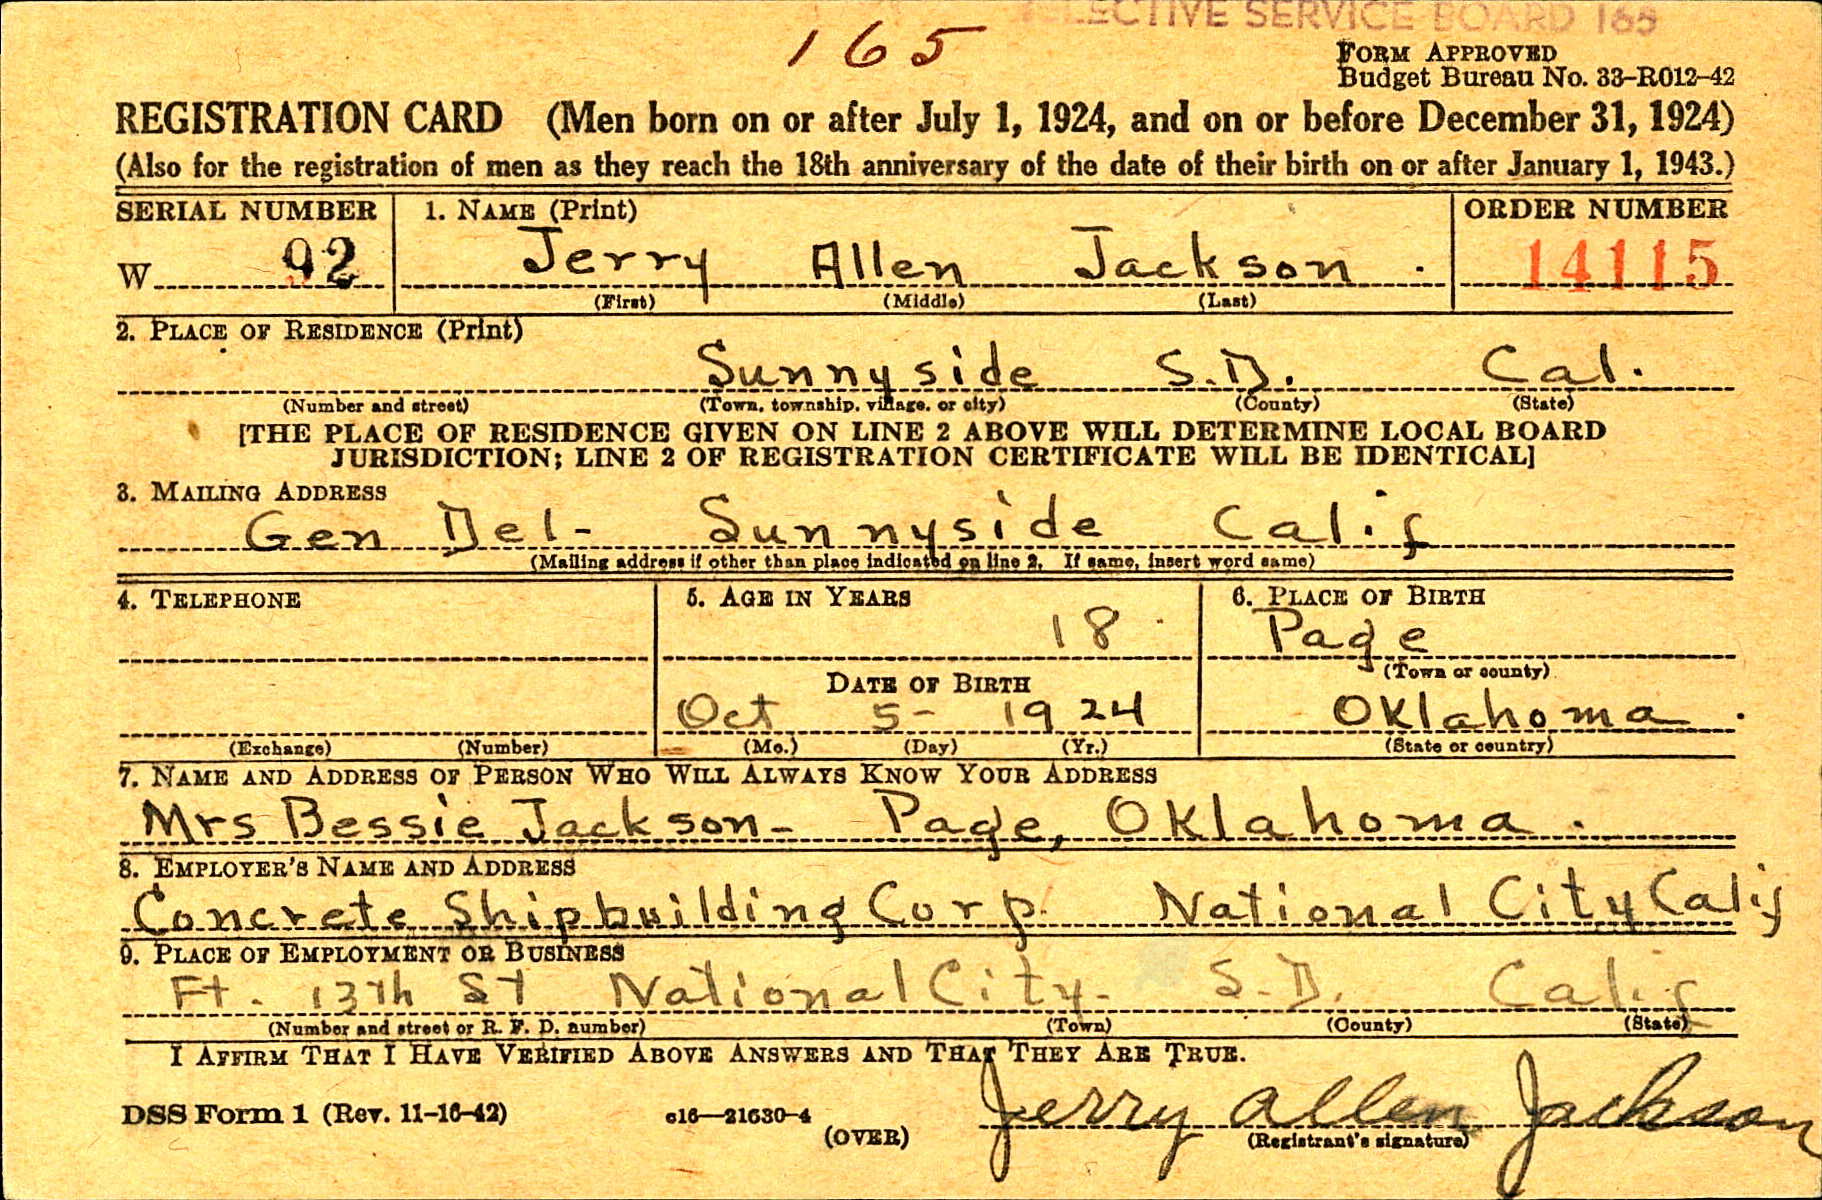 SELECTIVE SERVICE BOARD 165
165
FORM APPROVED
Budget Bureau No. 33–R012–42
REGISTRATION CARD (Men born on or after July 1, 1924, and on or before December 31, 1924)
(Also for the registration of men as they reach the 18th anniversary of the date of their birth on or after January 1, 1943.)
SERIAL NUMBER 1. NAME (Print) ORDER NUMBER
W 92 Jerry Allen Jackson . 14115
(First) (Middle) (Last)
2. PLACE OF RESIDENCE (Print)
Sunnyside S.D. Cal.
(Number and street) (Town, township, village, or city) (County) (State)
[THE PLACE OF RESIDENCE GIVEN ON LINE 2 ABOVE WILL DETERMINE LOCAL BOARD
JURISDICTION; LINE 2 OF REGISTRATION CERTIFICATE WILL BE IDENTICAL]
3. MAILING ADDRESS
Gen Del- Sunnyside Calif
(Mailing address if other than place indicated on line 2. If same, insert word same)
4. TELEPHONE 5. AGE IN YEARS 6. PLACE OF BIRTH
18 Page
(Town or county)
DATE OF BIRTH
Oct 5- 1924 Oklahoma .
(Exchange) (Number) (Mo.) (Day) (Yr.) (State or country)
7. NAME AND ADDRESS OF PERSON WHO WILL ALWAYS KNOW YOUR ADDRESS
Mrs Bessie Jackson- Page, Oklahoma .
8. EMPLOYER'S NAME AND ADDRESS
Concrete Shipbuilding Corp. National City Calif
9. PLACE OF EMPLOYMENT OR BUSINESS
Ft. 13th St National City- S.D. Calif
(Number and street or R. F. D. number) (Town) (County) (State)
I AFFIRM THAT I HAVE VERIFIED ABOVE ANSWERS AND THAT THEY ARE TRUE.
DSS Form 1 (Rev. 11–16–42) c16—21630–4 Jerry Allen Jackson
(OVER) (Registrant's signature)